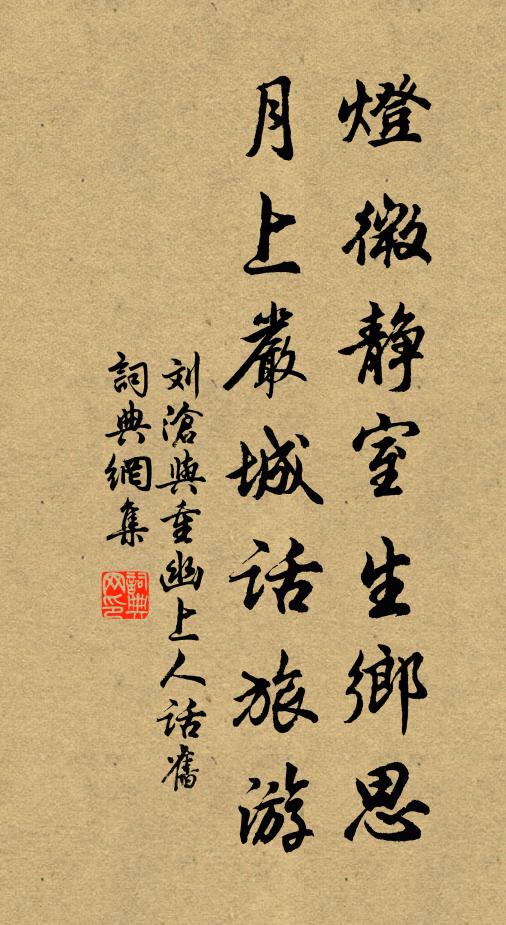 燈微静室生鄉思
月上嚴城话旅游
刘滄與重幽上人话舊
詞典網集
詞典网印